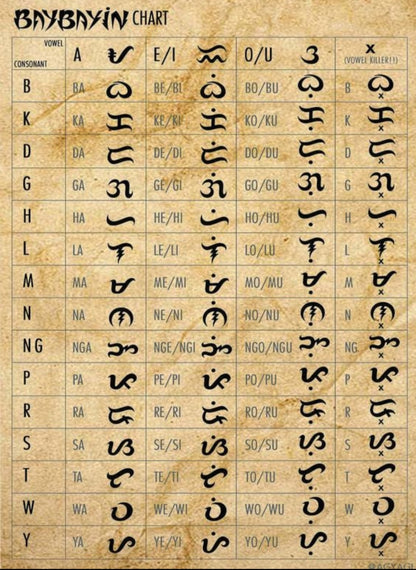 BAYBAYIN CHART
VOWEL
CONSONANT A ᜀ E/I ᜁ O/U ᜂ x
(VOWEL KILLER!!)
B BA ᜊ BE/BI ᜊᜒ BO/BU ᜊᜓ B ᜊ᜔
K KA ᜃ KE/KI ᜃᜒ KO/KU ᜃᜓ K ᜃ᜔
D DA ᜇ DE/DI ᜇᜒ DO/DU ᜇᜓ D ᜇ᜔
G GA ᜄ GE/GI ᜄᜒ GO/GU ᜄᜓ G ᜄ᜔
H HA ᜑ HE/HI ᜑᜒ HO/HU ᜑᜓ H ᜑ᜔
L LA ᜎ LE/LI ᜎᜒ LO/LU ᜎᜓ L ᜎ᜔
M MA ᜋ ME/MI ᜋᜒ MO/MU ᜋᜓ M ᜋ᜔
N NA ᜈ NE/NI ᜈᜒ NO/NU ᜈᜓ N ᜈ᜔
NG NGA ᜅ NGE/NGI ᜅᜒ NGO/NGU ᜅᜓ NG ᜅ᜔
P PA ᜉ PE/PI ᜉᜒ PO/PU ᜉᜓ P ᜉ᜔
R RA ᜍ RE/RI ᜍᜒ RO/RU ᜍᜓ R ᜍ᜔
S SA ᜐ SE/SI ᜐᜒ SO/SU ᜐᜓ S ᜐ᜔
T TA ᜆ TE/TI ᜆᜒ TO/TU ᜆᜓ T ᜆ᜔
W WA ᜏ WE/WI ᜏᜒ WO/WU ᜏᜓ W ᜏ᜔
Y YA ᜌ YE/YI ᜌᜒ YO/YU ᜌᜓ Y ᜌ᜔